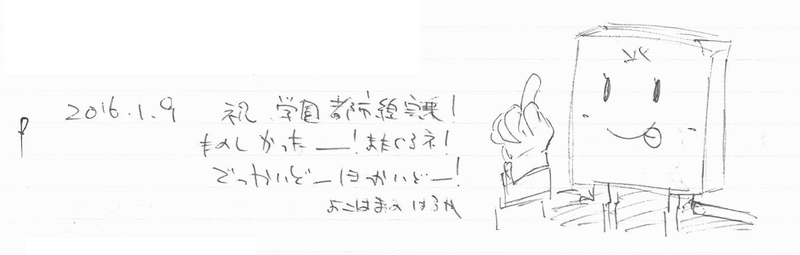 2016.1.9 祝 学園都市線完乗!
たのしかったー!またくるネ!
でっかいどーほっかいどー!
よこはまの はるか